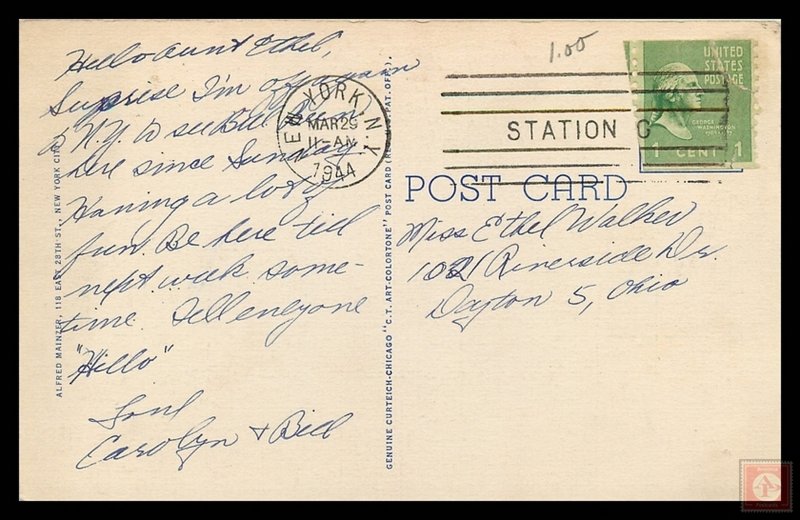 Hello Aunt Ethel,
Surprise I'm
N.Y. to see Bill. Been
here since Sunday
Having a lot of
fun. Be here till
next week some-
time. Tell everyone
"Hello"
Love
Carolyn + Bill
ALFRED MAINZER, 118 EAST 28TH ST., NEW YORK CITY
GENUINE CURTEICH-CHICAGO "C.T. ART-COLORTONE" POST CARD (REG. U.S. PAT. OFF.)
NEW YORK, N.Y.
MAR 29
11-AM
1944
1.00
STATION C
UNITED
STATES
POSTAGE
GEORGE
WASHINGTON
1 CENT 1
POST CARD
Miss Ethel Walker
1021 Riverside Dr.
Dayton 5, Ohio